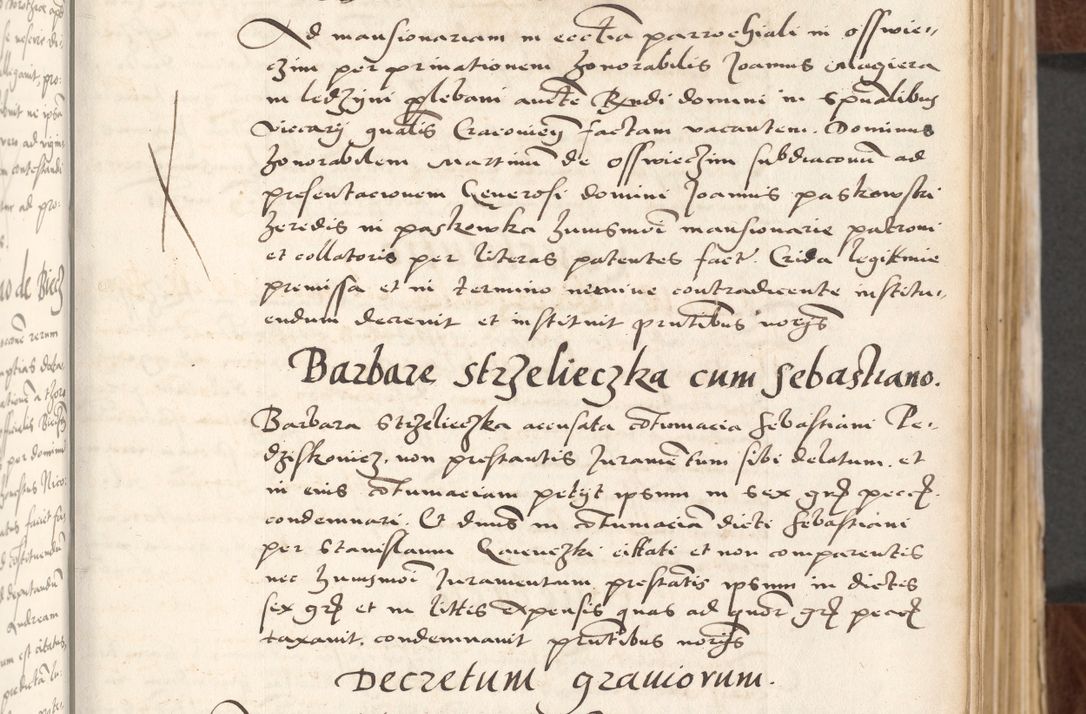 Ad mansionariam in ecctia parrochiali in osswie-
czim per privationem honorabilis Joannis Magiera
in ledzyni plebani aucte Rndi domini in spualibus
vicarij gnalis Cracovien factam vacantem. Dominus
honorabilem Martinu de osswieczim subdiaconu ad
presentacionem Generosi domini Joannis paskowski
heredis in paskowka huiusmoi mansionarie patroni
et collatoris per literas patentes fact. Crida legittime
premissa et in termino nemine contradicente institu-
endum decrevit et instituit pntibus noris
Barbare strzelieczka cum Sebastiano.
Barbara Strzelieczka accusata cotumacia Sebastiani Pe-
dziskowicz, non prestantis Juramentum sibi delatum. et
in eius cotumaciam petijt ipsum in sex gr pecc.
condemnari. Et dnus in cotumacia dicti Sebastiani
per Stanislaum cittati et non comparentis
nec huiusmoi Juramentum prestatis ipsum in dictis
sex gr et in littis expensis quas ad quor gr pecc
taxavit, condemnavit pntibus noris
Decretum graviorum.